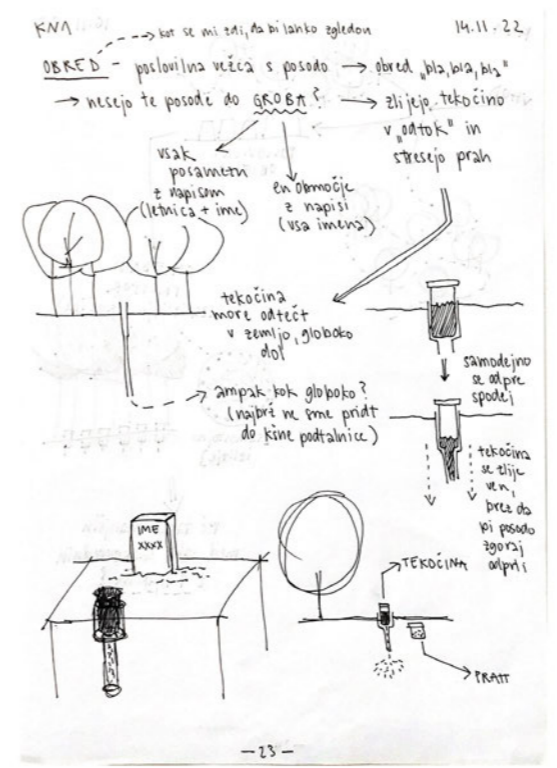 KNA
14.11.22
→ kot se mi zdi, da bi lahko zgledou
OBRED – poslovilna vežca s posodo → obred „bla, bla, bla"
→ nesejo te posode do GROBA? → zlijejo tekočino
v „odtok" in
stresejo prah
vsak
posametni
z napisom
(letnica + ime)
en območje
z napisi
(vsa imena)
tekočina
more odtečt
v zemljo, globoko
dol
samodejno
se odpre
spodej
ampak kok globoko?
(najbrž ne sme pridt
do kšne podtalnice)
tekočina
se zlije
ven,
brez da
bi posodo
zgoraj
odprli
IME
XXXX
TEKOČINA
PRAH
– 23 –